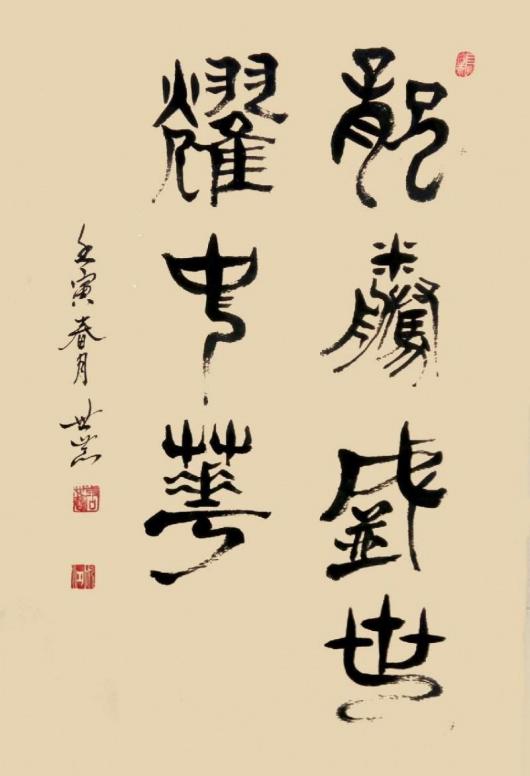 龍騰盛世
耀中華
壬寅春月 世